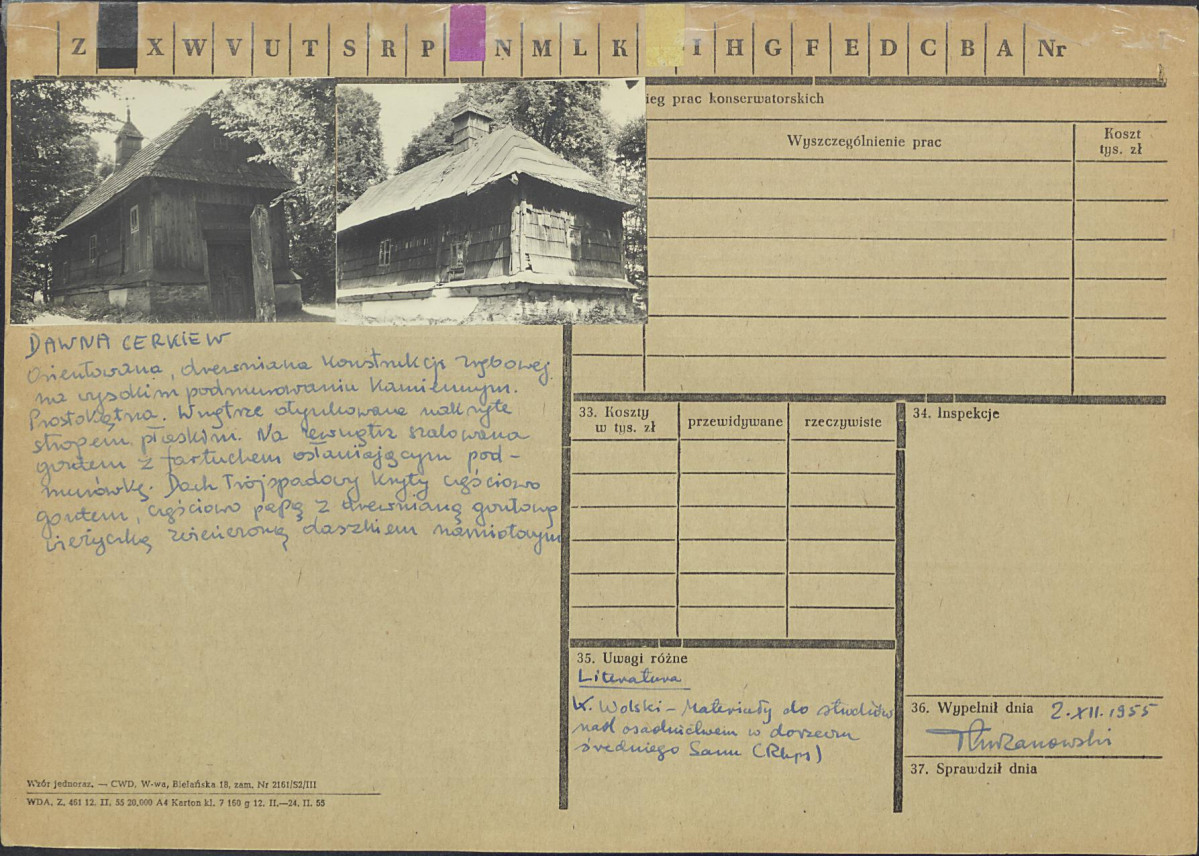 Z X W V U T S R P N M L K I H G F E D C B A Nr
ieg prac konserwatorskich
Wyszczególnienie prac
Koszt
tys. zł
DAWNA CERKIEW
Orientowana, drewniana konstrukcji zrębowej
na wysokim podmurowaniu kamiennym.
Prostokątna. Wnętrze otynkowane nakryte
stropem płaskim. Na zewnątrz szalowana
gontem z fartuchem osłaniającym pod-
murówkę. Dach trójspadowy kryty częściowo
gontem, częściowo papą z drewnianą gontową
wieżyczką zwieńczoną daszkiem namiotowym
33. Koszty
w tys. zł
przewidywane
rzeczywiste
34. Inspekcje
35. Uwagi różne
Literatura
K. Wolski – Materiały do studiów
nad osadnictwem w dorzeczu
średniego Sanu (Rkps)
36. Wypełnił dnia 2.XII.1955
37. Sprawdził dnia
Wzór jednoraz. — CWD, W-wa, Bielańska 18, zam. Nr 2161/52/III
WDA. Z. 461 12. II. 55 20.000 A4 Karton kl. 7 160 g 12. II.—24. II. 55